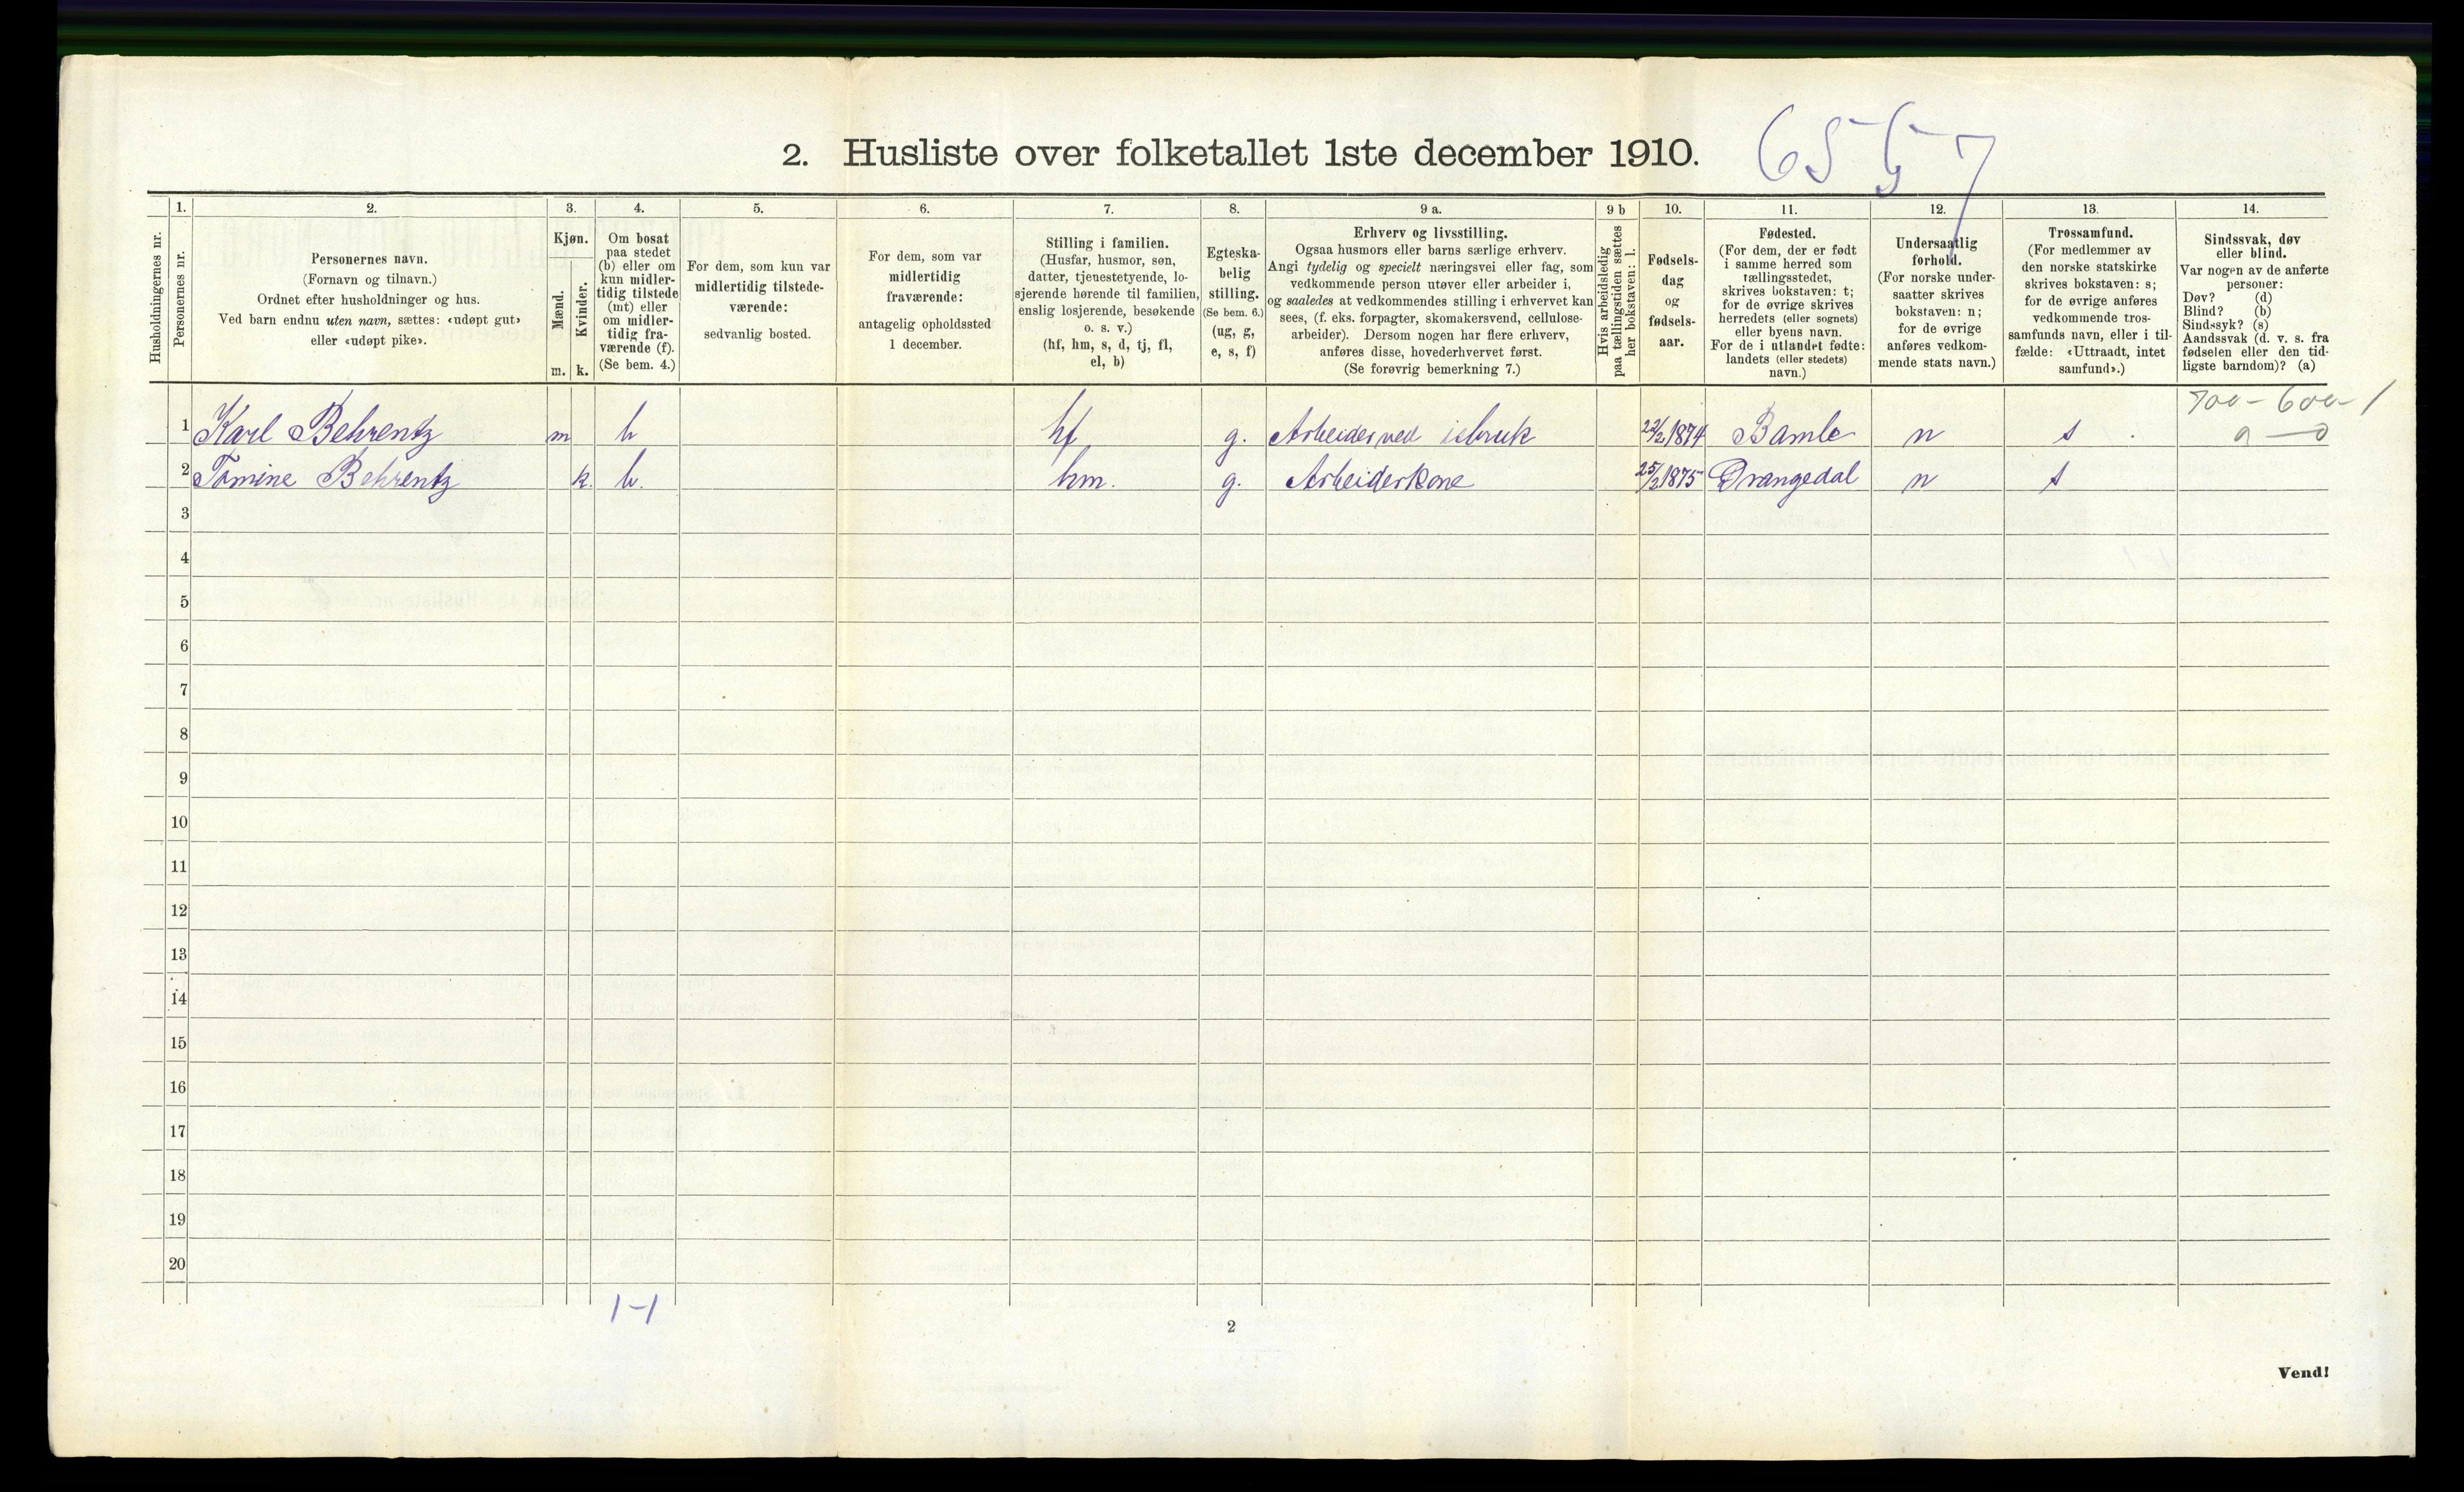 2. Husliste over folketallet 1ste december 1910.
6557
Husholdningernes nr.
1.
Personernes nr.
2.
Personernes navn.
(Fornavn og tilnavn.)
Ordnet efter husholdninger og hus.
Ved barn endnu uten navn, sættes: «udøpt gut»
eller «udøpt pike».
3.
Kjøn.
Mænd.
Kvinder.
m. k.
4.
Om bosat
paa stedet
(b) eller om
kun midler-
tidig tilstede
(mt) eller
om midler-
tidig fra-
værende (f).
(Se bem. 4.)
5.
For dem, som kun var
midlertidig tilstede-
værende:
sedvanlig bosted.
6.
For dem, som var
midlertidig
fraværende:
antagelig opholdssted
1 december.
7.
Stilling i familien.
(Husfar, husmor, søn,
datter, tjenestetyende, lo-
sjerende hørende til familien,
enslig losjerende, besøkende
o. s. v.)
(hf, hm, s, d, tj, fl,
el, b)
8.
Egteska-
belig
stilling.
(Se bem. 6.)
(ug, g,
e, s, f)
9 a.
Erhverv og livsstilling.
Ogsaa husmors eller barns særlige erhverv.
Angi tydelig og specielt næringsvei eller fag, som
vedkommende person utøver eller arbeider i,
og saaledes at vedkommendes stilling i erhvervet kan
sees, (f. eks. forpagter, skomakersvend, cellulose-
arbeider). Dersom nogen har flere erhverv,
anføres disse, hovederhvervet først.
(Se forøvrig bemerkning 7.)
9 b
Hvis arbeidsledig
paa tællingstiden sættes
her bokstaven: l.
10.
Fødsels-
dag
og
fødsels-
aar.
11.
Fødested.
(For dem, der er født
i samme herred som
tællingsstedet,
skrives bokstaven: t;
for de øvrige skrives
herredets (eller sognets)
eller byens navn.
For de i utlandet fødte:
landets (eller stedets)
navn.)
12.
Undersaatlig
forhold.
(For norske under-
saatter skrives
bokstaven: n;
for de øvrige
anføres vedkom-
mende stats navn.)
13.
Trossamfund.
(For medlemmer av
den norske statskirke
skrives bokstaven: s;
for de øvrige anføres
vedkommende tros-
samfunds navn, eller i til-
fælde: «Uttraadt, intet
samfund».)
14.
Sindssvak, døv
eller blind.
Var nogen av de anførte
personer:
Døv? (d)
Blind? (b)
Sindssyk? (s)
Aandssvak (d. v. s. fra
fødselen eller den tid-
ligste barndom)? (a)
700 - 600 - 1
1 Karl Behrentz m b hf g. Arbeider ved isbruk 22/2 1874 Bamle n s
2 Tomine Behrentz k. b. hm. g. Arbeiderkone 25/2 1875 Drangedal n s
3
4
5
6
7
8
9
10
11
12
13
14
15
16
17
18
19
20
1-1
2
Vend!